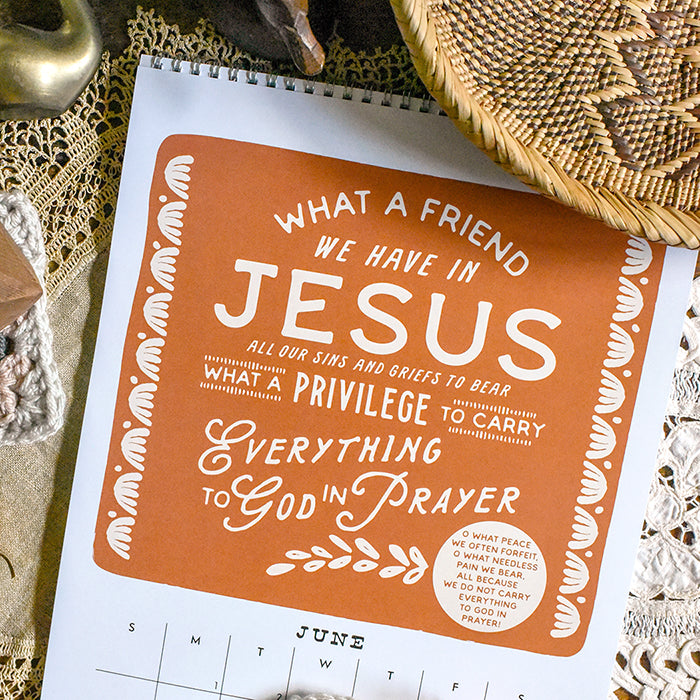 WHAT A FRIEND
WE HAVE IN
JESUS
ALL OUR SINS AND GRIEFS TO BEAR
WHAT A PRIVILEGE TO CARRY
EVERYTHING
TO GOD IN PRAYER
O WHAT PEACE
WE OFTEN FORFEIT,
O WHAT NEEDLESS
PAIN WE BEAR.
ALL BECAUSE
WE DO NOT CARRY
EVERYTHING
TO GOD IN
PRAYER!
JUNE
S M T W T F S
1 2